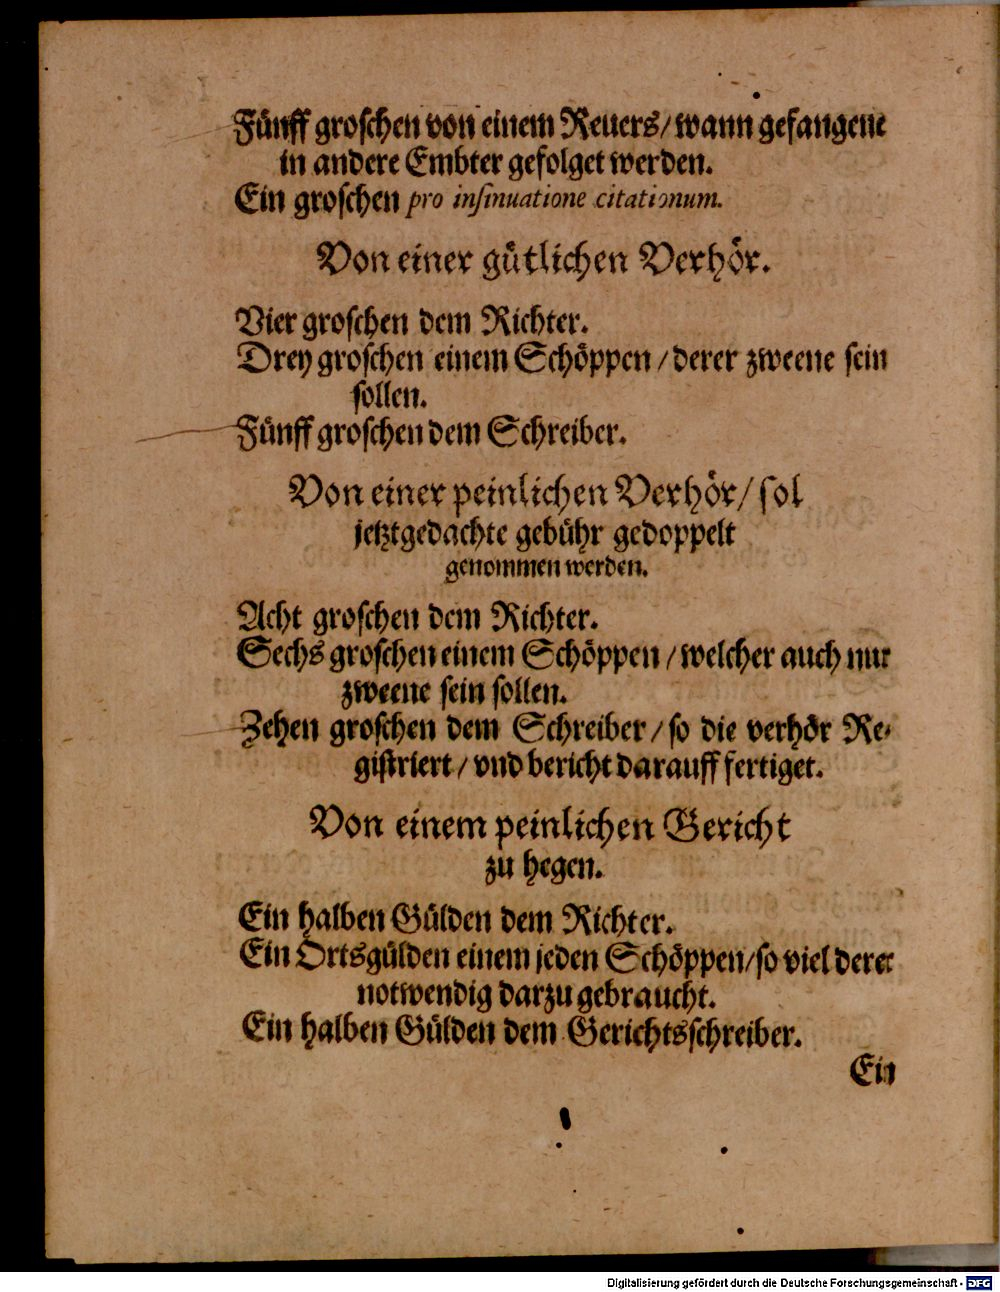 Fünff groſchen von einem Reuers/ wann gefangene
in andere Embter gefolget werden.
Ein groſchen pro inſinuatione citationum.
Von einer gůtlichen Verhör.
Vier groſchen dem Richter.
Drey groſchen einem Schöppen / derer zweene ſein
ſollen.
Fünff groſchen dem Schreiber.
Von einer peinlichen Verhör/ ſol
jetztgedachte gebühr gedoppelt
genommen werden.
Acht groſchen dem Richter.
Sechs groſchen einem Schöppen / welcher auch nur
zweene ſein ſollen.
Zehen groſchen dem Schreiber / ſo die verhör Re-
giſtriert / vnd bericht darauff fertiget.
Von einem peinlichen Gericht
zu hegen.
Ein halben Gülden dem Richter.
Ein Ortsgülden einem jeden Schöppen/ ſo viel derer
notwendig darzu gebraucht.
Ein halben Gülden dem Gerichtsſchreiber.
Ein
Digitalisierung gefördert durch die Deutsche Forschungsgemeinschaft - DFG